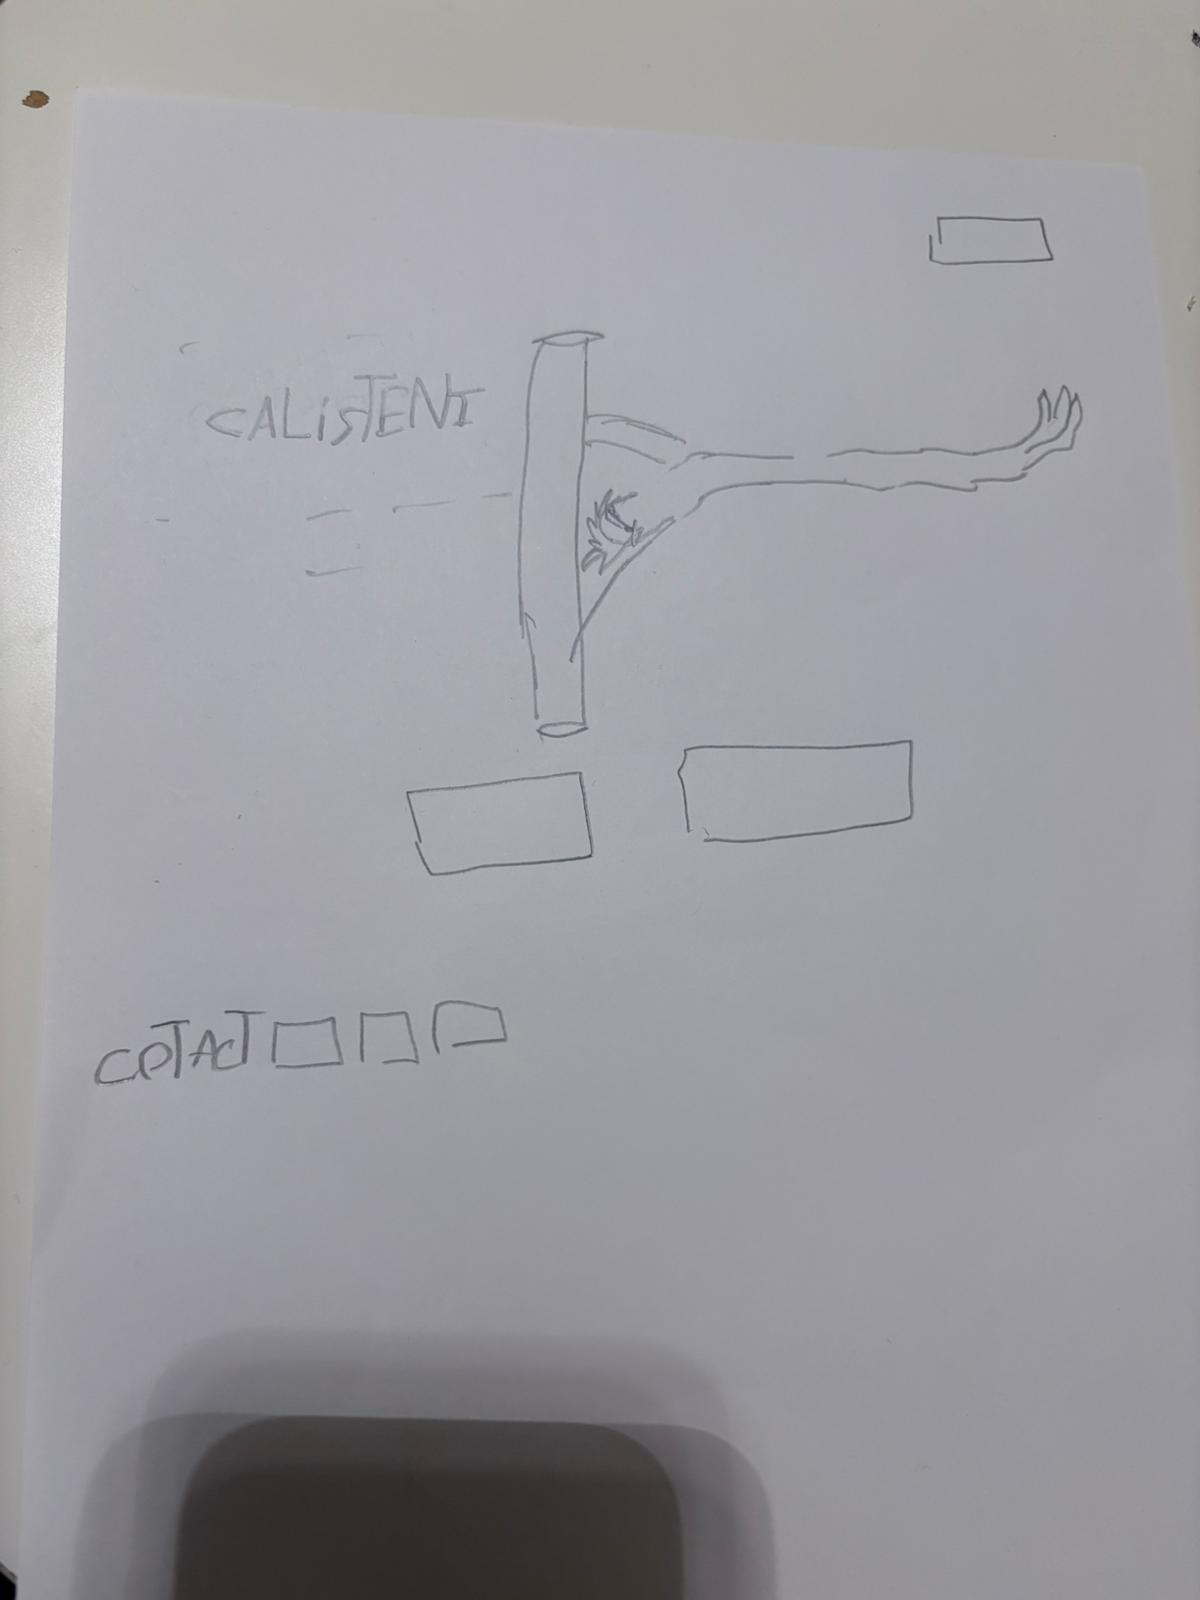 CALiSTENI
COTACT